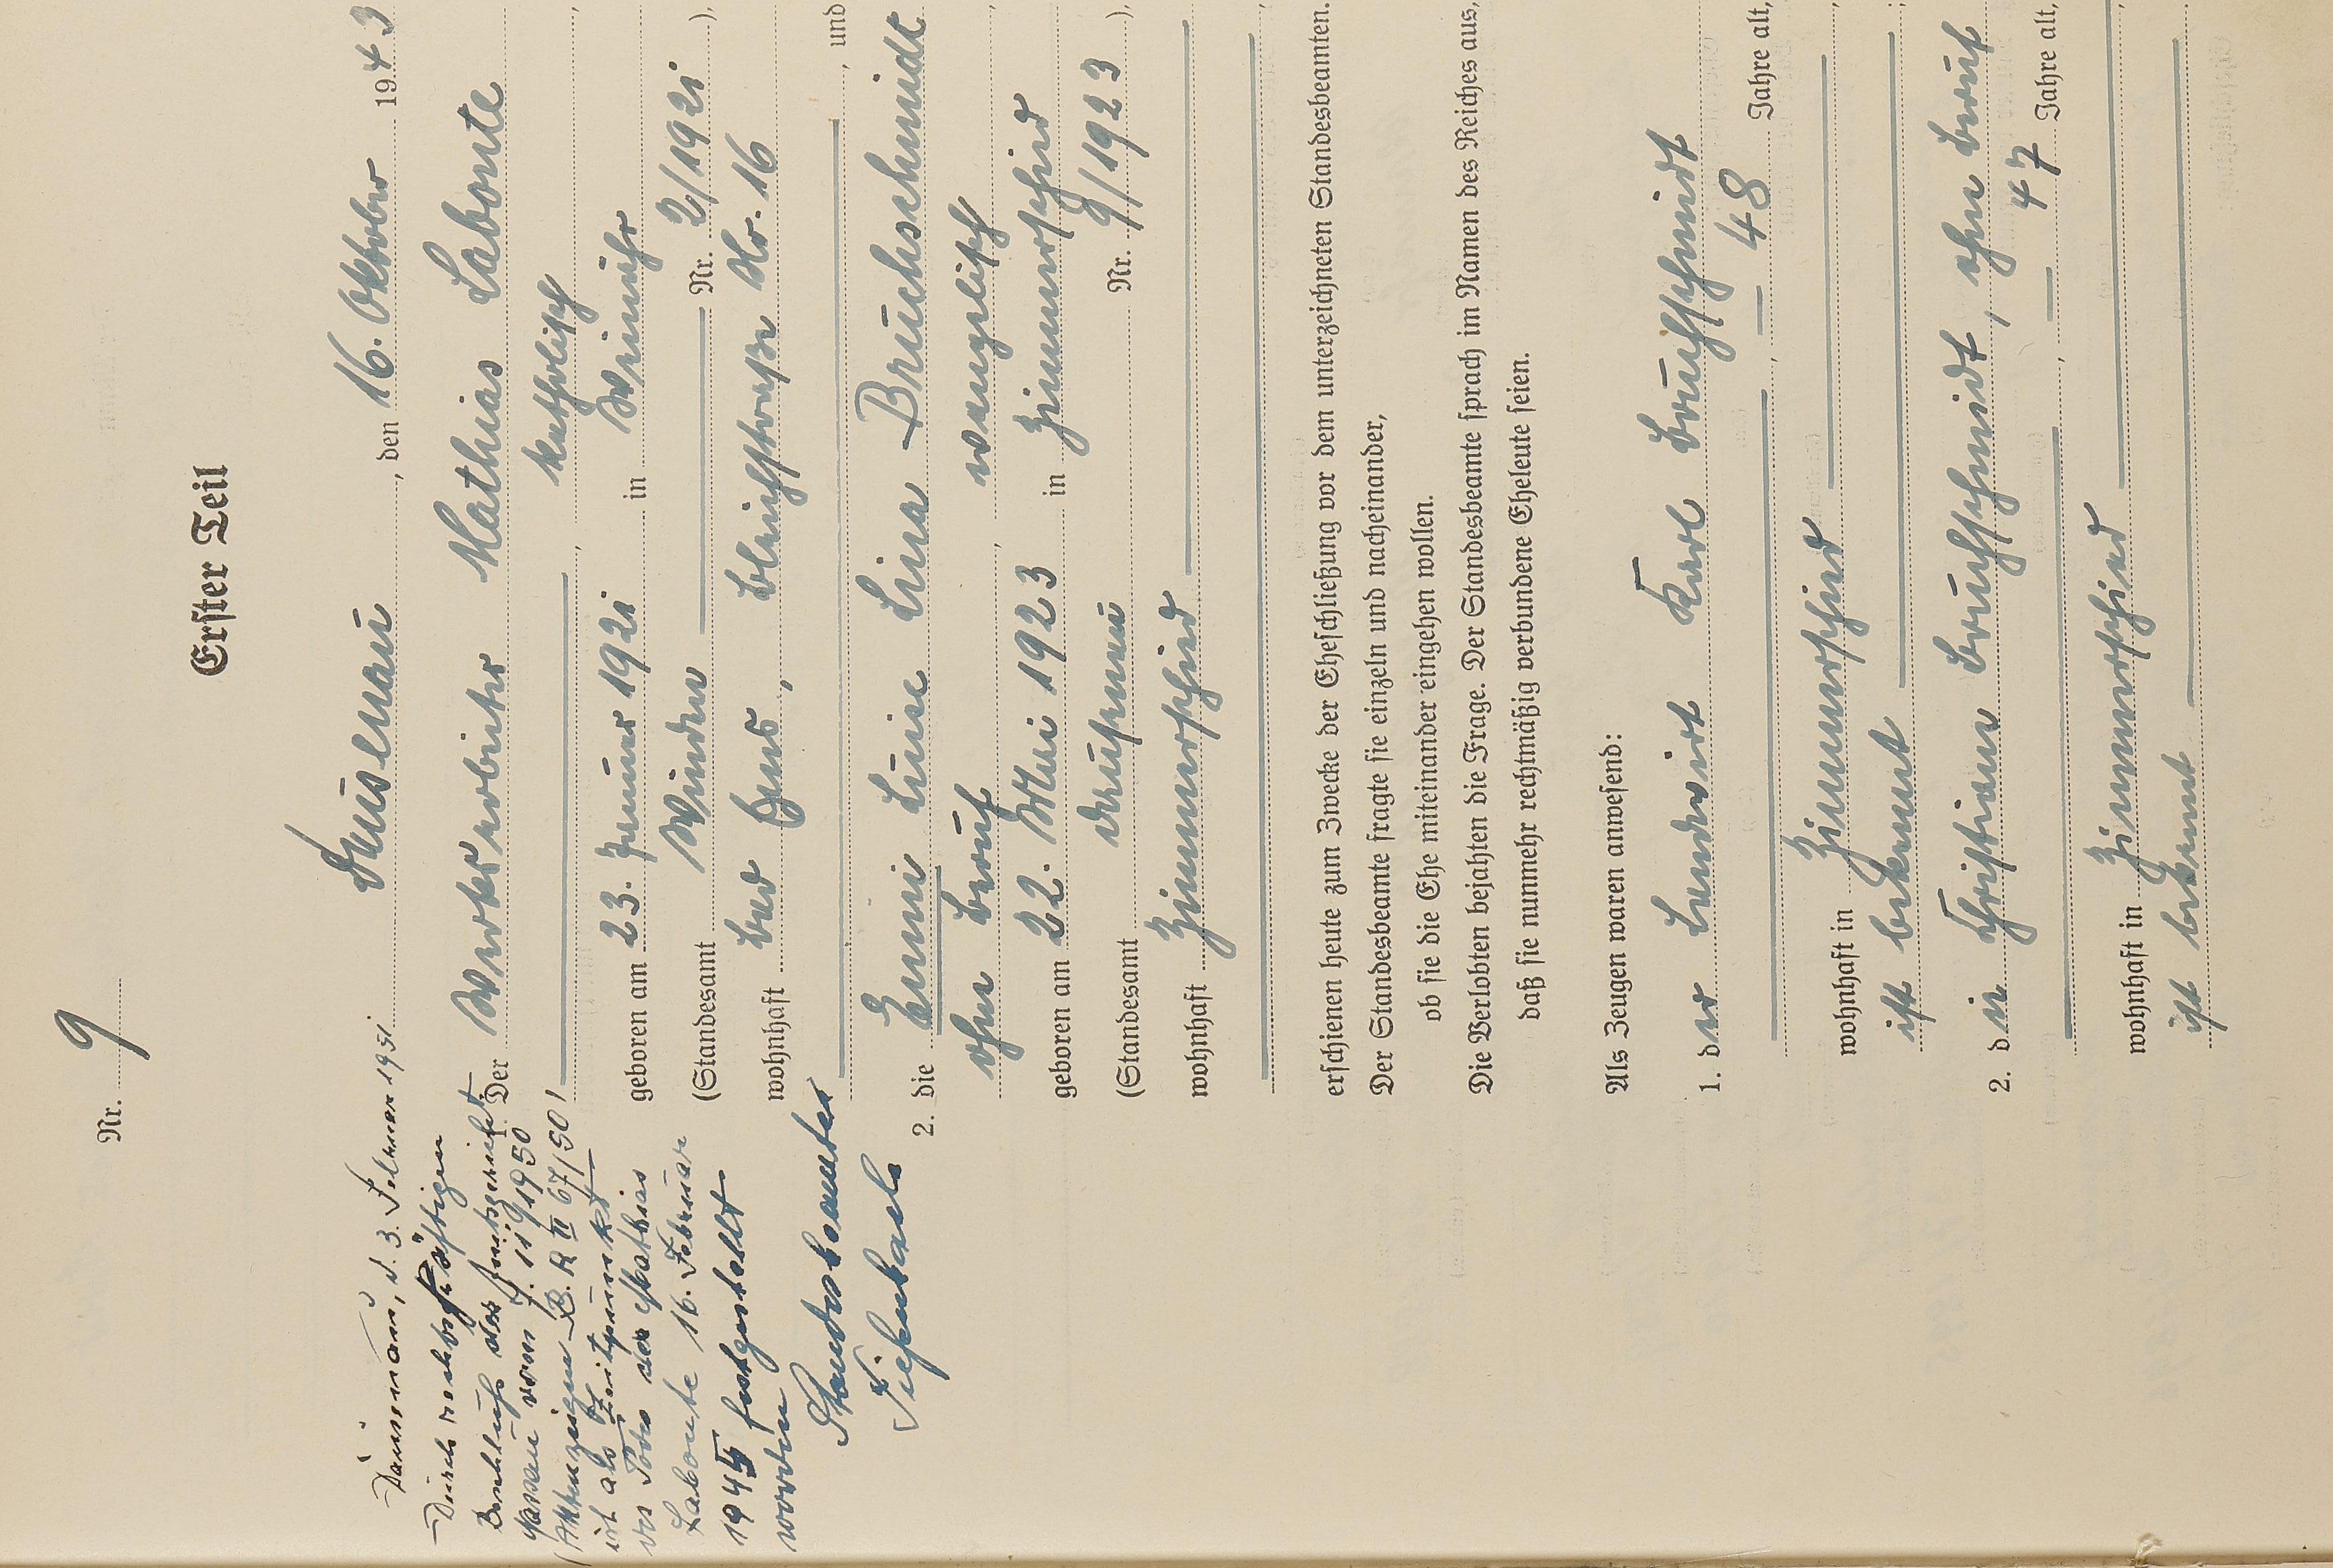 Nr. 9
Erster Teil
Dausenau, den 16. Oktober 1943
1. Der Werksarbeiter Mathias Labonte
katholisch
geboren am 23. Januar 1921 in Weinähr
(Standesamt Winden Nr. 2/1921),
wohnhaft Bad Ems, Bleichstraße Nr. 16
, und
2. die Emmi Luise Lina Bruchschmidt
ohne Beruf, evangelisch
geboren am 22. Mai 1923 in Zimmerschied
(Standesamt Dausenau Nr. 9/1923),
wohnhaft Zimmerschied
erschienen heute zum Zwecke der Eheschließung vor dem unterzeichneten Standesbeamten.
Der Standesbeamte fragte sie einzeln und nacheinander,
ob sie die Ehe miteinander eingehen wollen.
Die Verlobten bejahten die Frage. Der Standesbeamte sprach im Namen des Reiches aus,
daß sie nunmehr rechtmäßig verbundene Eheleute seien.
Als Zeugen waren anwesend:
1. der Landwirt Karl Bruchschmidt
, 48 Jahre alt,
wohnhaft in Zimmerschied,
ist bekannt;
2. die Christiane Bruchschmidt, ohne Beruf
, 47 Jahre alt,
wohnhaft in Zimmerschied,
ist bekannt
Dausenau, d. 3. Februar 1951
Durch rechtskräftigen
Beschluß des Amtsgerichts
Nassau vom 7.11.1950
(Aktenzeichen II 67/50)
ist als Zeitpunkt
des Todes des Mathias
Labonte 16. Februar
1945 festgestellt
worden
Standesbeamter